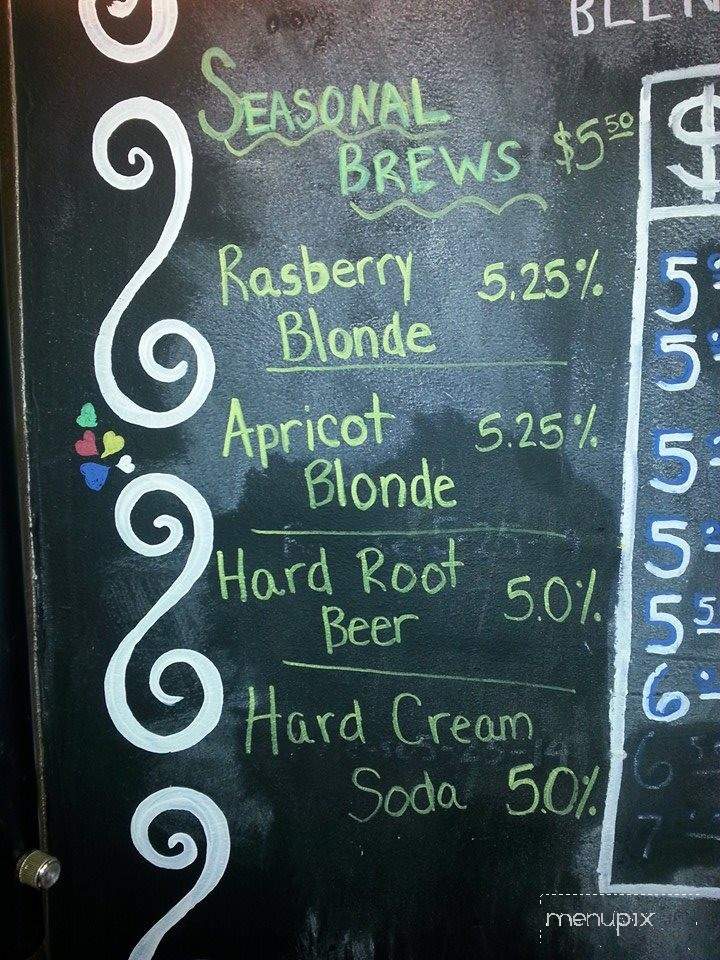 SEASONAL
BREWS $5 50
Rasberry 5.25%
Blonde
Apricot 5.25%
Blonde
Hard Root
Beer 5.0%
Hard Cream
Soda 5.0%
$
5
5
5
5
5 5
6
6
7
menupix